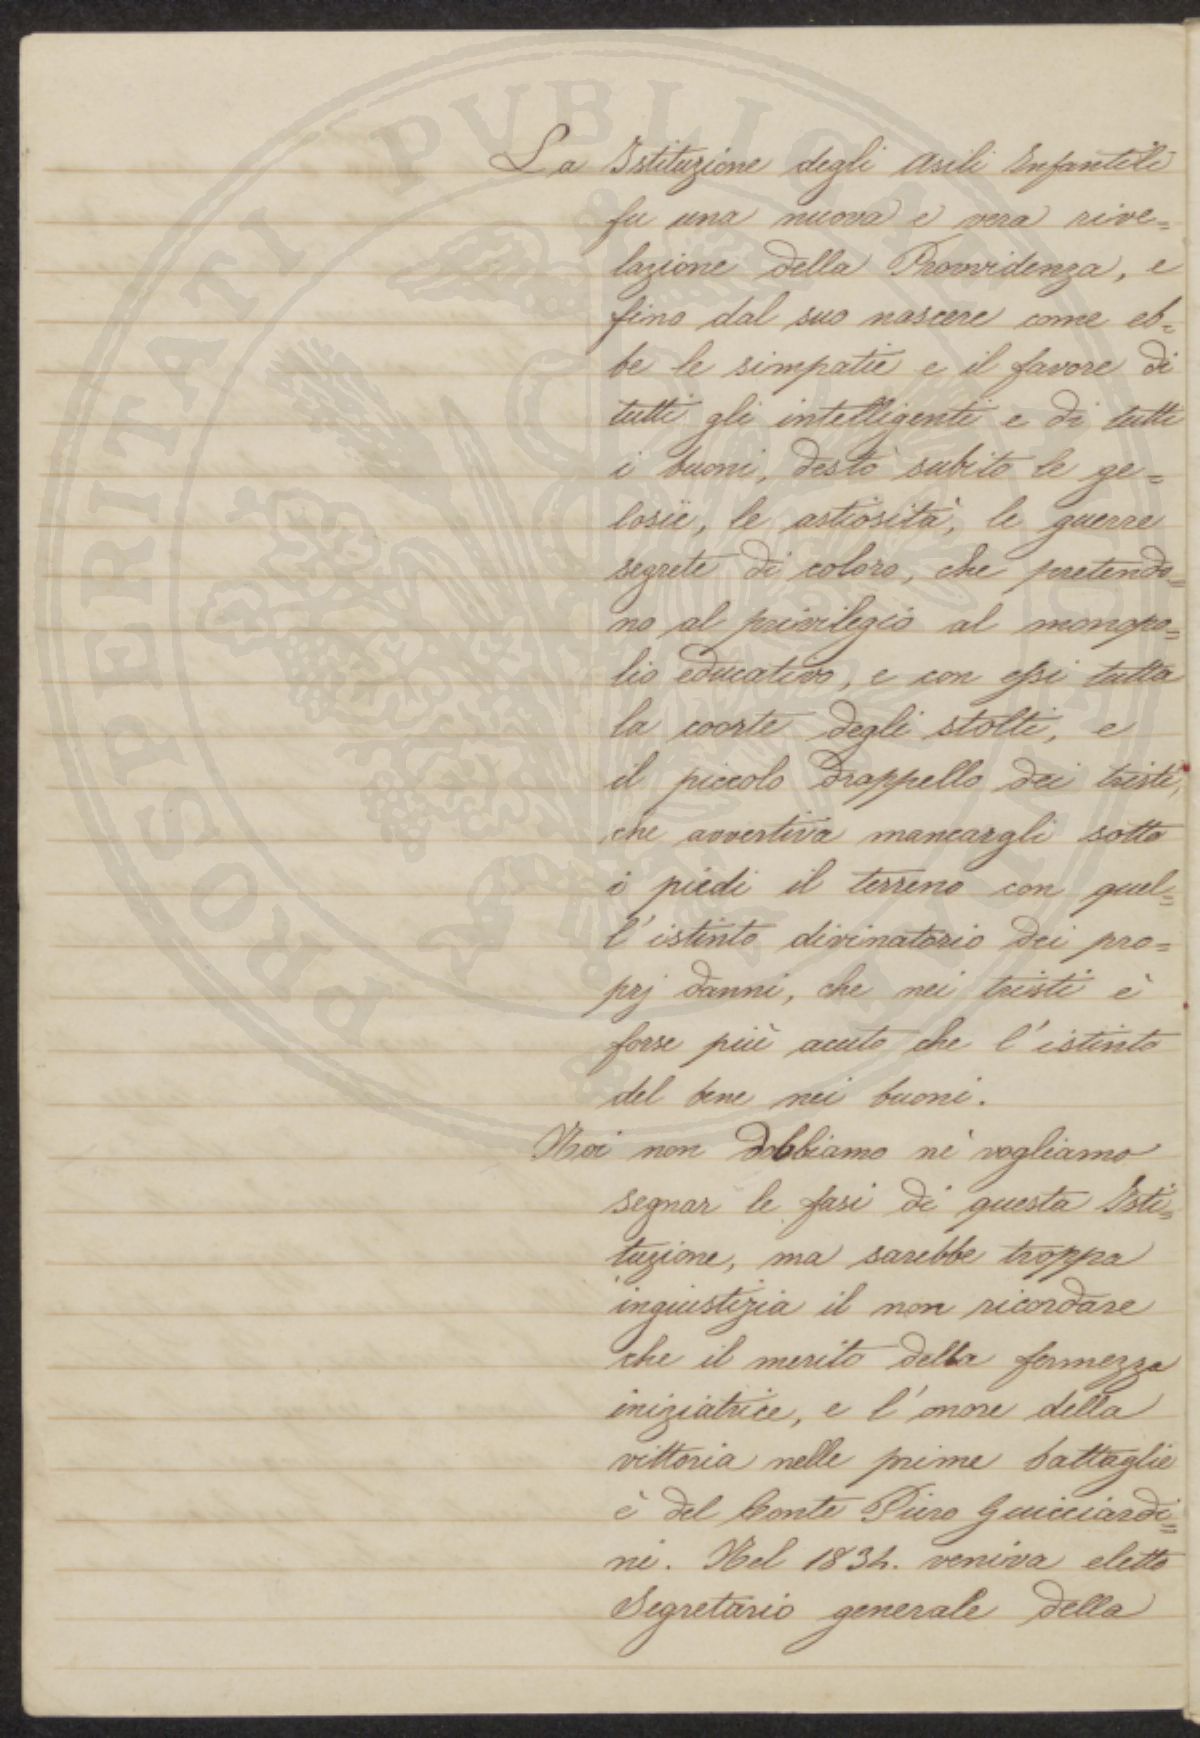 La Istituzione degli Asili Infantili
fu una nuova e vera rive=
lazione della Provvidenza, e
fino dal suo nascere come eb=
be le simpatie e il favore di
tutti gli intelligenti e di tutti
i buoni, destò subito le ge=
losie, le astiosità, le guerre
segrete di coloro, che pretendo=
no al privilegio al monopo=
lio educativo, e con essi tutta
la coorte degli stolti, e
il piccolo drappello dei tristi,
che avvertiva mancargli sotto
i piedi il terreno con quel=
l'istinto divinatorio dei pro=
prj danni, che nei tristi è
forse più acuto che l'istinto
del bene nei buoni.
Noi non dobbiamo nè vogliamo
segnar le fasi di questa Isti=
tuzione, ma sarebbe troppa
ingiustizia il non ricordare
che il merito della fermezza
iniziatrice, e l'onore della
vittoria nelle prime battaglie
è del Conte Piero Guicciardi=
ni. Nel 1834. veniva eletto
Segretario generale della
PROSPERITATI PVBLICAE